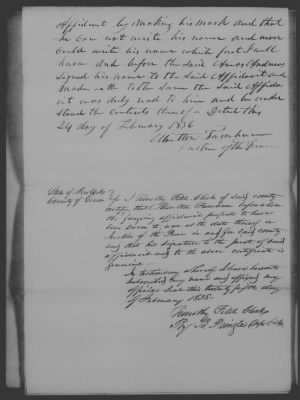 Affidavit by making his mark and that
he can not write his name and never
could write his name which fact I well
know and before the said Amos Andrews
signed his name to the said Affidavit and
made oath to the same the said Affidav
it was duly read to him and he under
stood the contents thereof Dated this
24 day of February 1836
Justice of the Peace
State of New York
County of
I Timothy
Clerk of said county
certify, that
before whom
the foregoing affidavit purports to have
been sworn to was at the date thereof a
Justice of the Peace in and for said county
and that his signature to the jurat of said
affidavit and to the above certificate is
genuine.
In testimony whereof I have hereunto
subscribed my name and affixed my
official seal this twenty fifth day
of February 1836.
Timothy
Clerk
By
Pringle